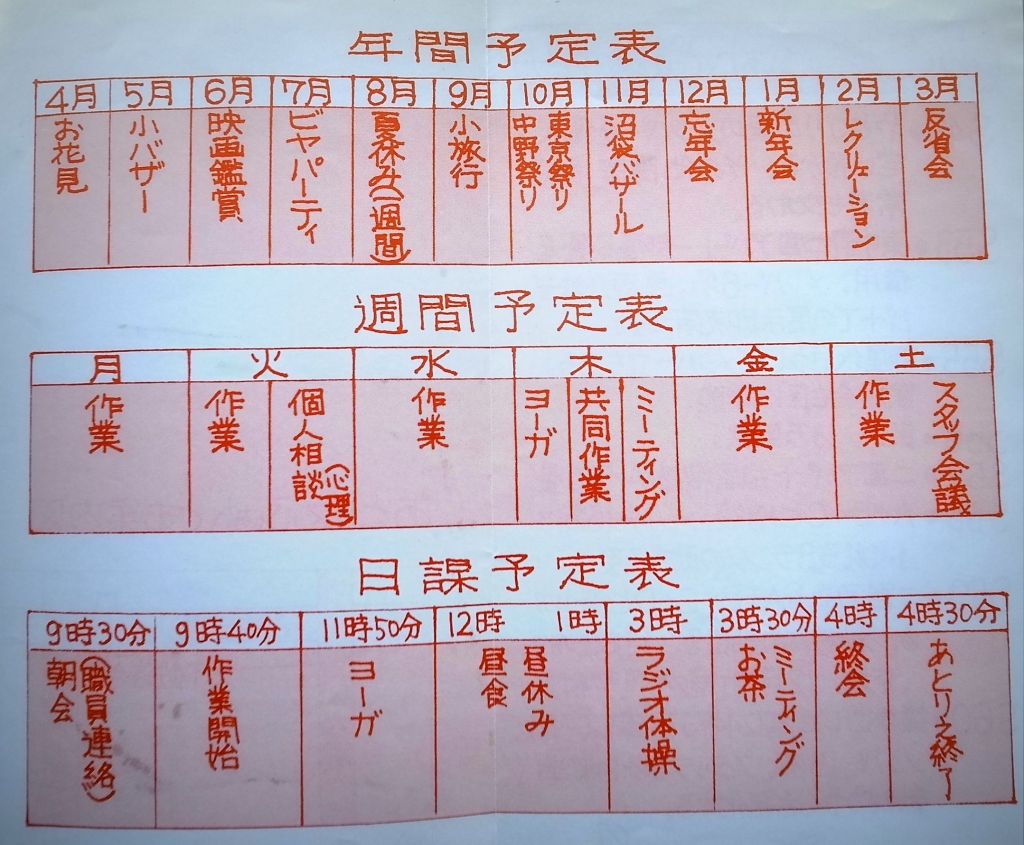 年間予定表
4月 5月 6月 7月 8月 9月 10月 11月 12月 1月 2月 3月
お花見
小バザー
映画鑑賞
ビヤパーティ
夏休み(一週間)
小旅行
東京祭り
中野祭り
沼袋バザール
忘年会
新年会
レクリェーション
反省会
週間予定表
月 火 水 木 金 土
作業
作業
個人相談
(心理)
作業
ヨーガ
共同作業
ミーティング
作業
作業
スタッフ会議
日課予定表
9時30分 9時40分 11時50分 12時 1時 3時 3時30分 4時 4時30分
朝会
(職員連絡)
作業開始
ヨーガ
昼食
昼休み
ラジオ体操
お茶
ミーティング
終会
あとりえ終了